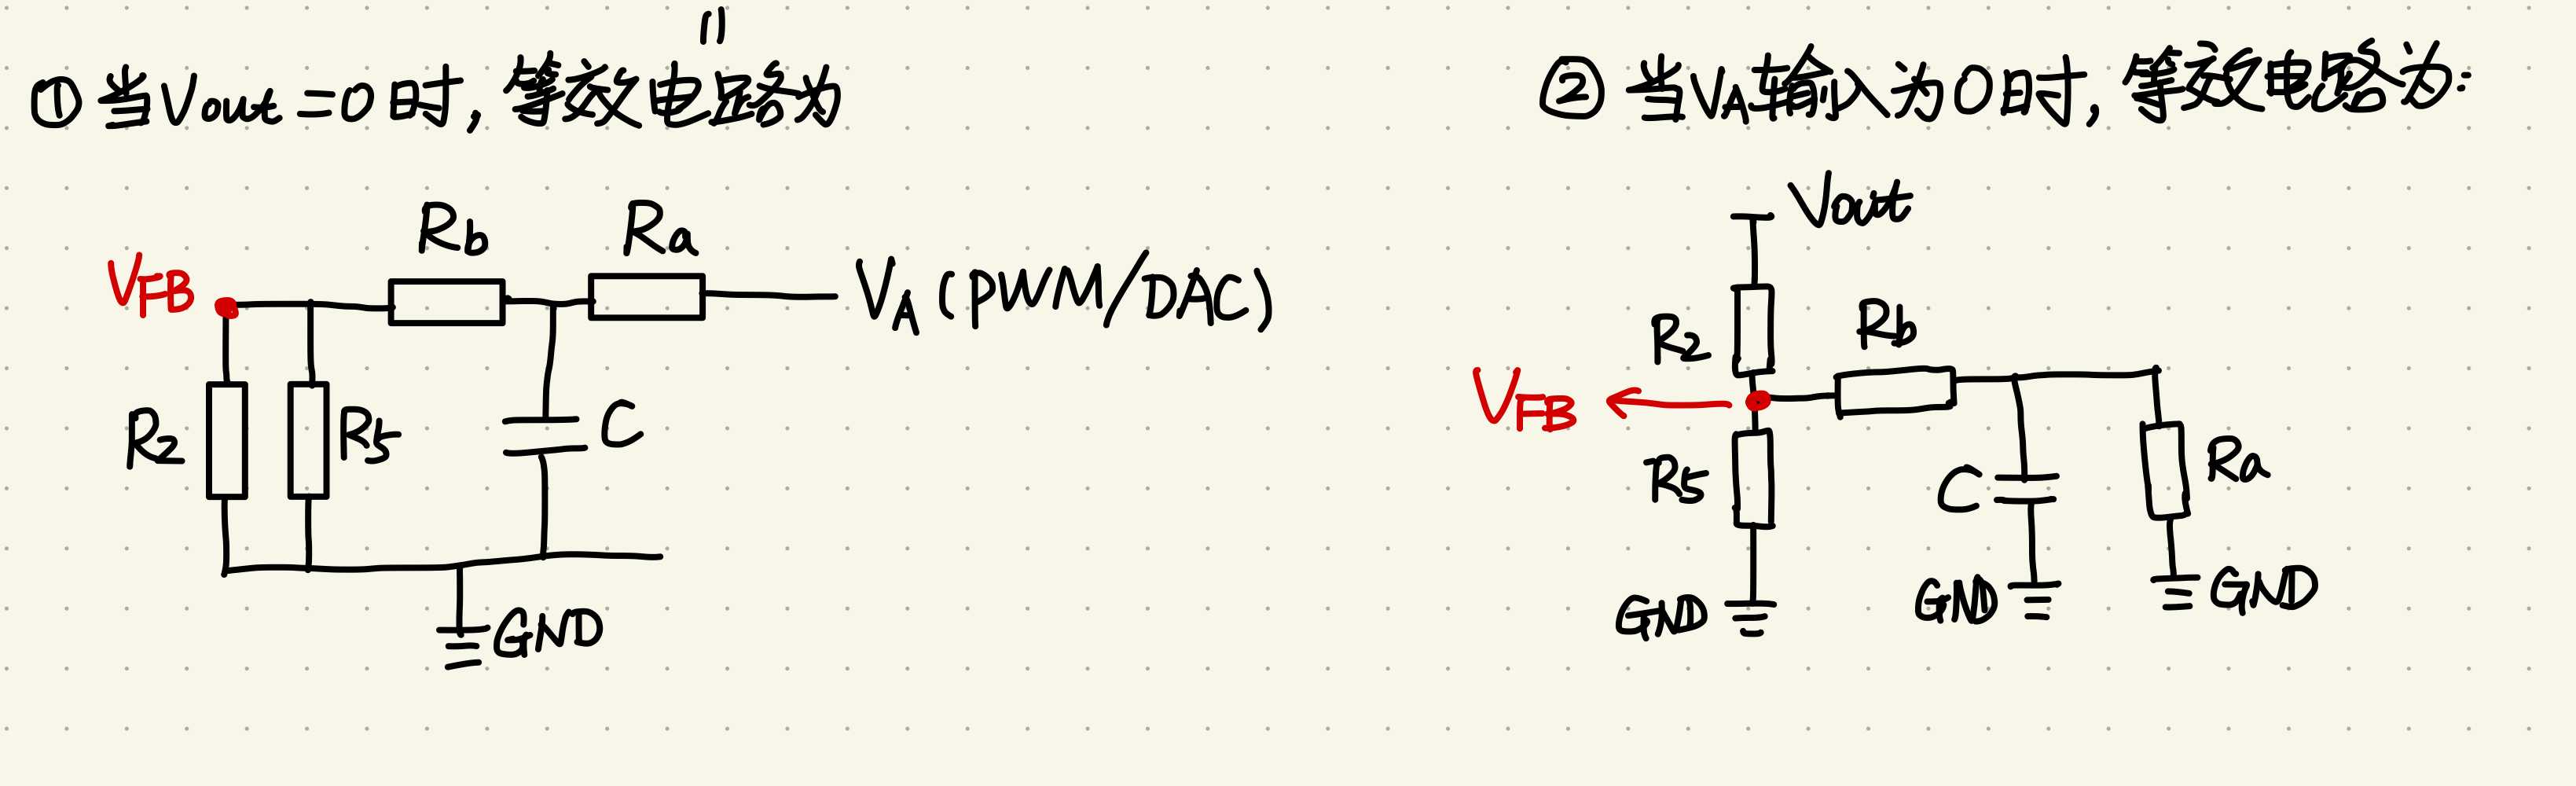 ①当Vout=0时,等效电路为
VFB
Rb
Ra
VA(PWM/DAC)
R2
R5
C
GND
②当VA输入为0时,等效电路为:
Vout
R2
Rb
VFB
R5
C
Ra
GND
GND
GND